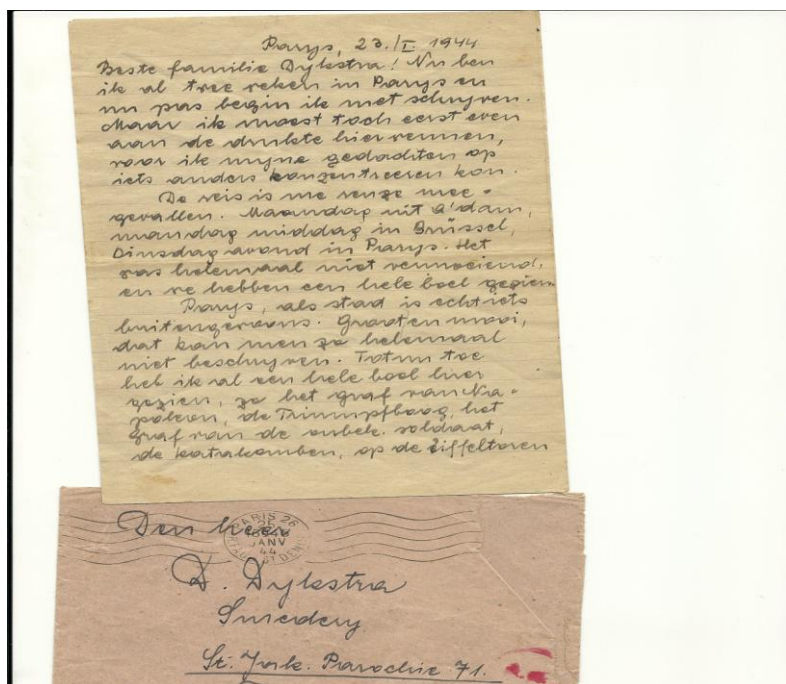 Parys, 23./I. 1944
Beste familie Dykstra! Nu ben
ik al twee weken in Parys en
nu pas begin ik met schryven.
Maar ik moest toch eerst even
aan de drukte hier wennen,
voor ik myne gedachten op
iets anders konzentreeren kon.
De reis is me reuze mee-
gevallen. Maandag uit A'dam,
mandag middag in Brüssel,
Dinsdag avond in Parys. Het
was helemaal niet vermoeiend,
en we hebben een hele boel gezien
Parys, als stad is echt iets
buitengewoons. Groot en mooi,
dat kan men zo helemaal
niet beschryven. Tot nu toe
heb ik al een hele boel hier
gezien, zo het graf van Na-
poleon, de Triumpfboog, het
graf van de onbek. soldaat,
de katakomben, op de Eiffeltoren
PARIS 26
25
JANV
44
Den heer
D. Dykstra
Smedery
St. Jack. Parochie 71.